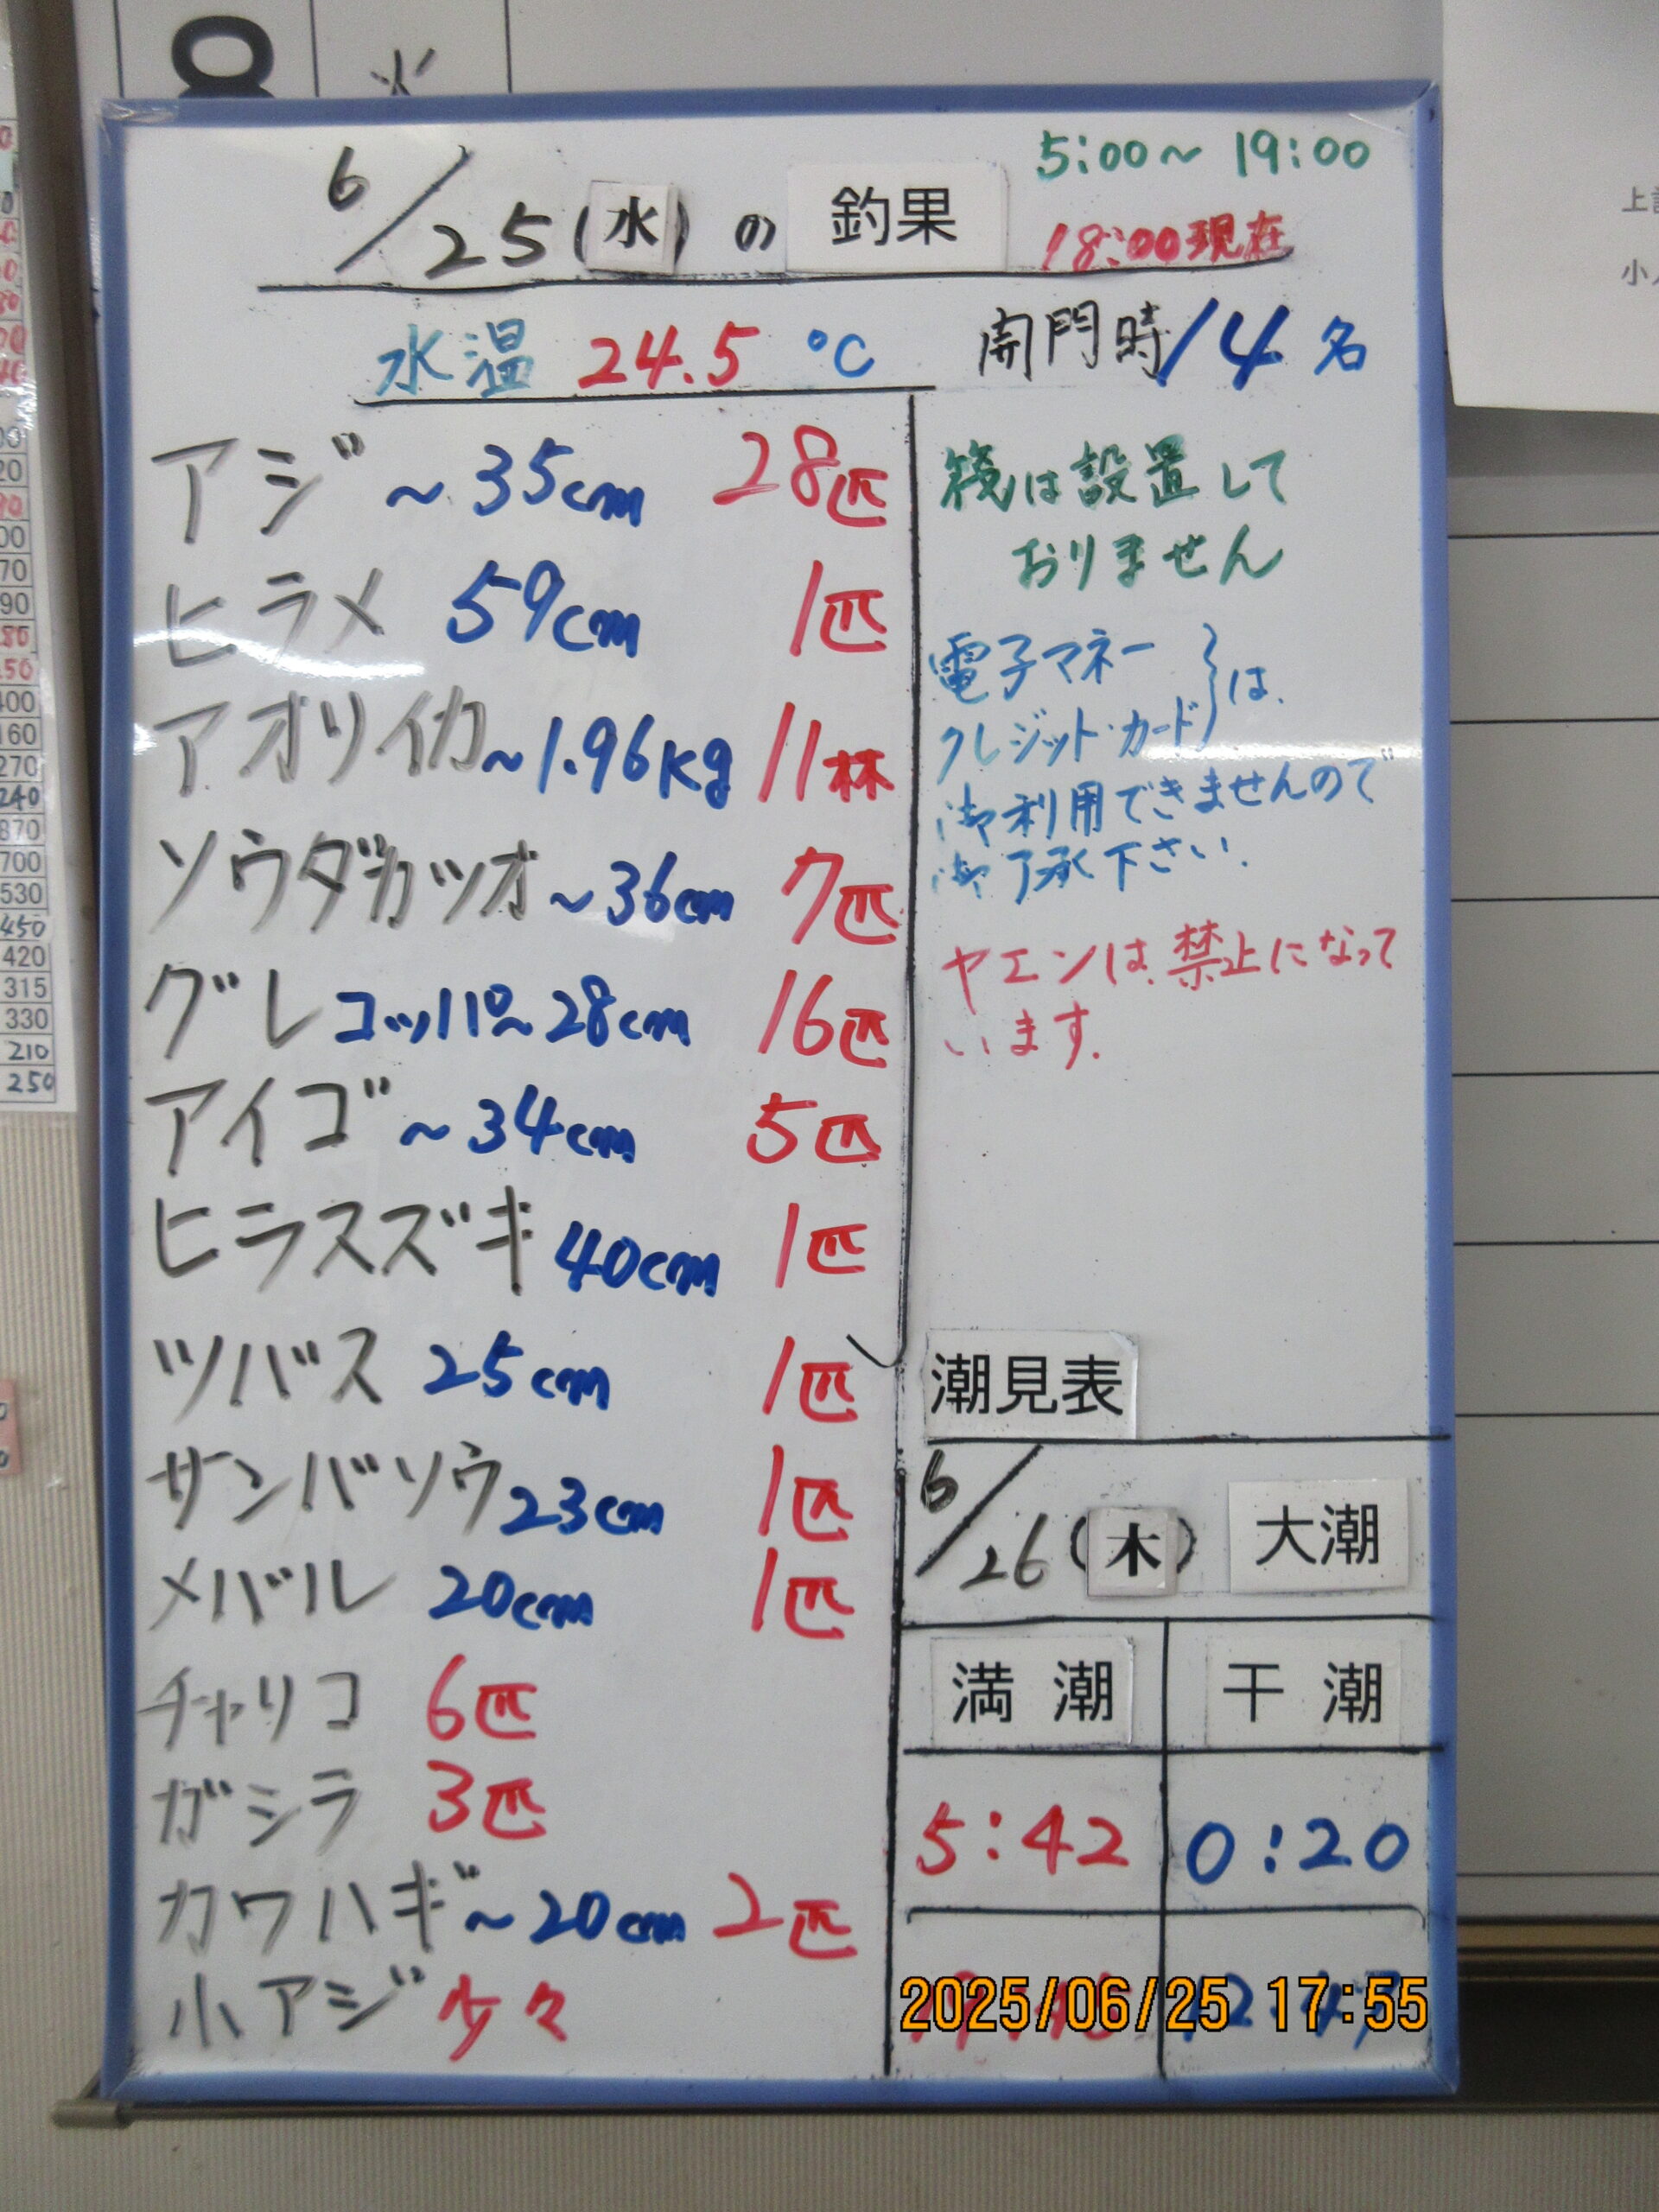 6/25(水)の 釣果
5:00～19:00
18:00現在
水温 24.5 ℃
開門時 14名
アジ ～35cm 28匹
ヒラメ 59cm 1匹
アオリイカ ～1.96kg 11杯
ソウダガツオ ～36cm 7匹
グレ コッパ～28cm 16匹
アイゴ ～34cm 5匹
ヒラスズキ 40cm 1匹
ツバス 25cm 1匹
サンバソウ 23cm 1匹
メバル 20cm 1匹
チャリコ 6匹
ガシラ 3匹
カワハギ ～20cm 2匹
小アジ 少々
筏は設置して
おりません
電子マネー
クレジット・カード}は、
御利用できませんので
御了承下さい.
ヤエンは、禁止になって
います.
潮見表
6/26(木) 大潮
満潮 干潮
5:42 0:20
2025/06/25 17:55
8 火
420
315
330
210
250